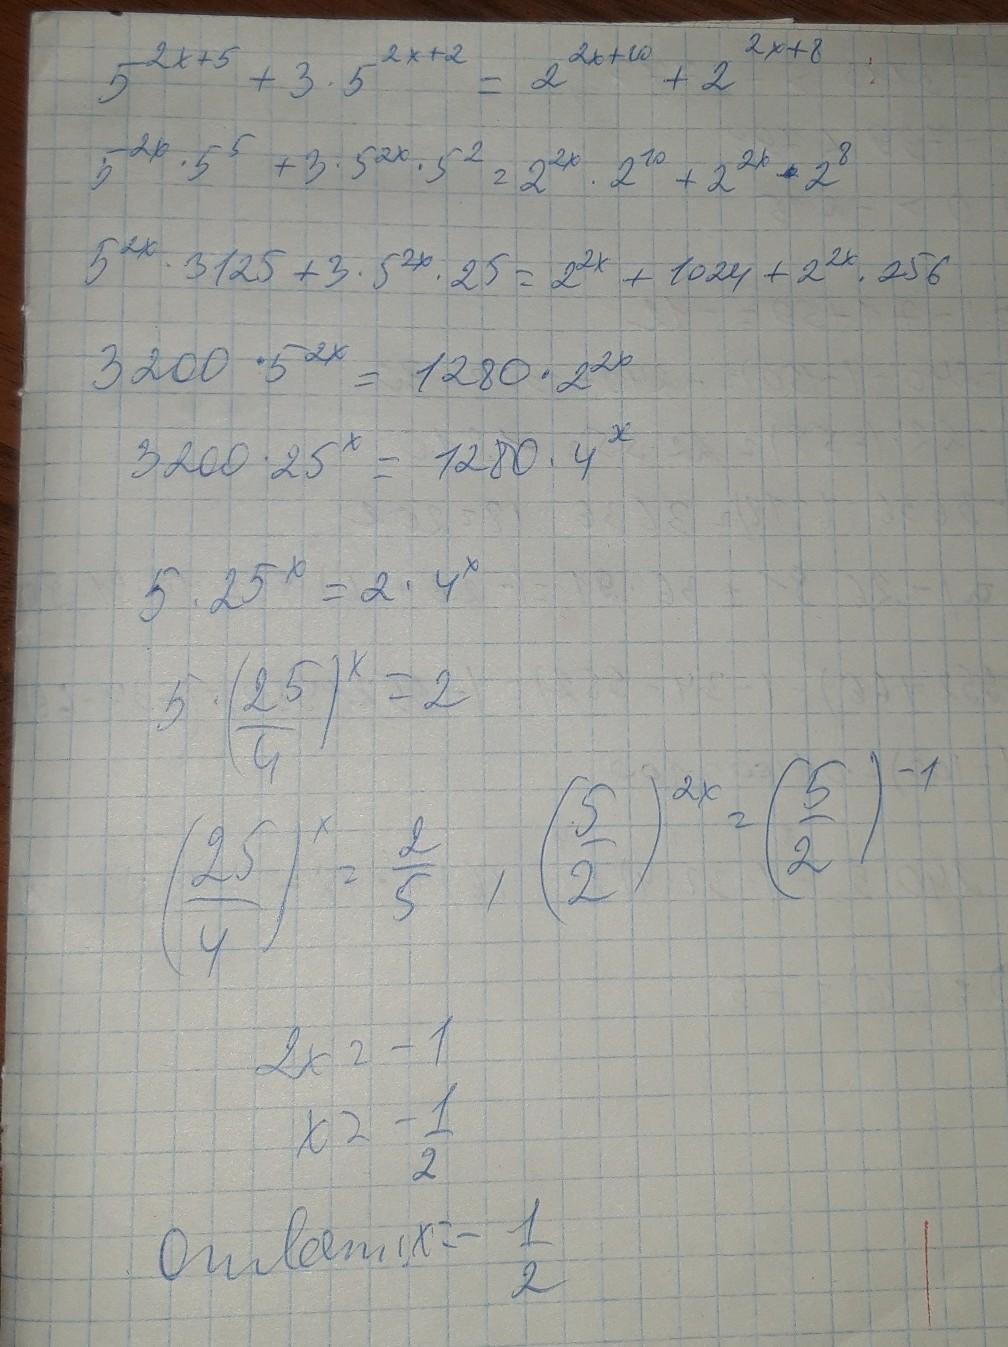 5^{2x+5} + 3·5^{2x+2} = 2^{2x+10} + 2^{2x+8}
5^{2x}·5^5 + 3·5^{2x}·5^2 = 2^{2x}·2^{10} + 2^{2x}·2^8
5^{2x}·3125 + 3·5^{2x}·25 = 2^{2x} + 1024 + 2^{2x}·256
3200·5^{2x} = 1280·2^{2x}
3200·25^x = 1280·4^x
5·25^x = 2·4^x
5·(25/4)^x = 2
(25/4)^x = 2/5, (5/2)^{2x} = (5/2)^{-1}
2x = -1
x = -1/2
Ответ: x = -1/2